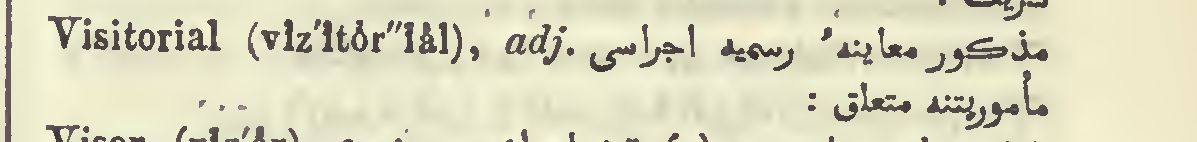 Visitorial (vĭz′ĭtôr″ĭål), adj. مذكور معاینهٔ رسمیه اجراسی
مأموریتنه متعلق :